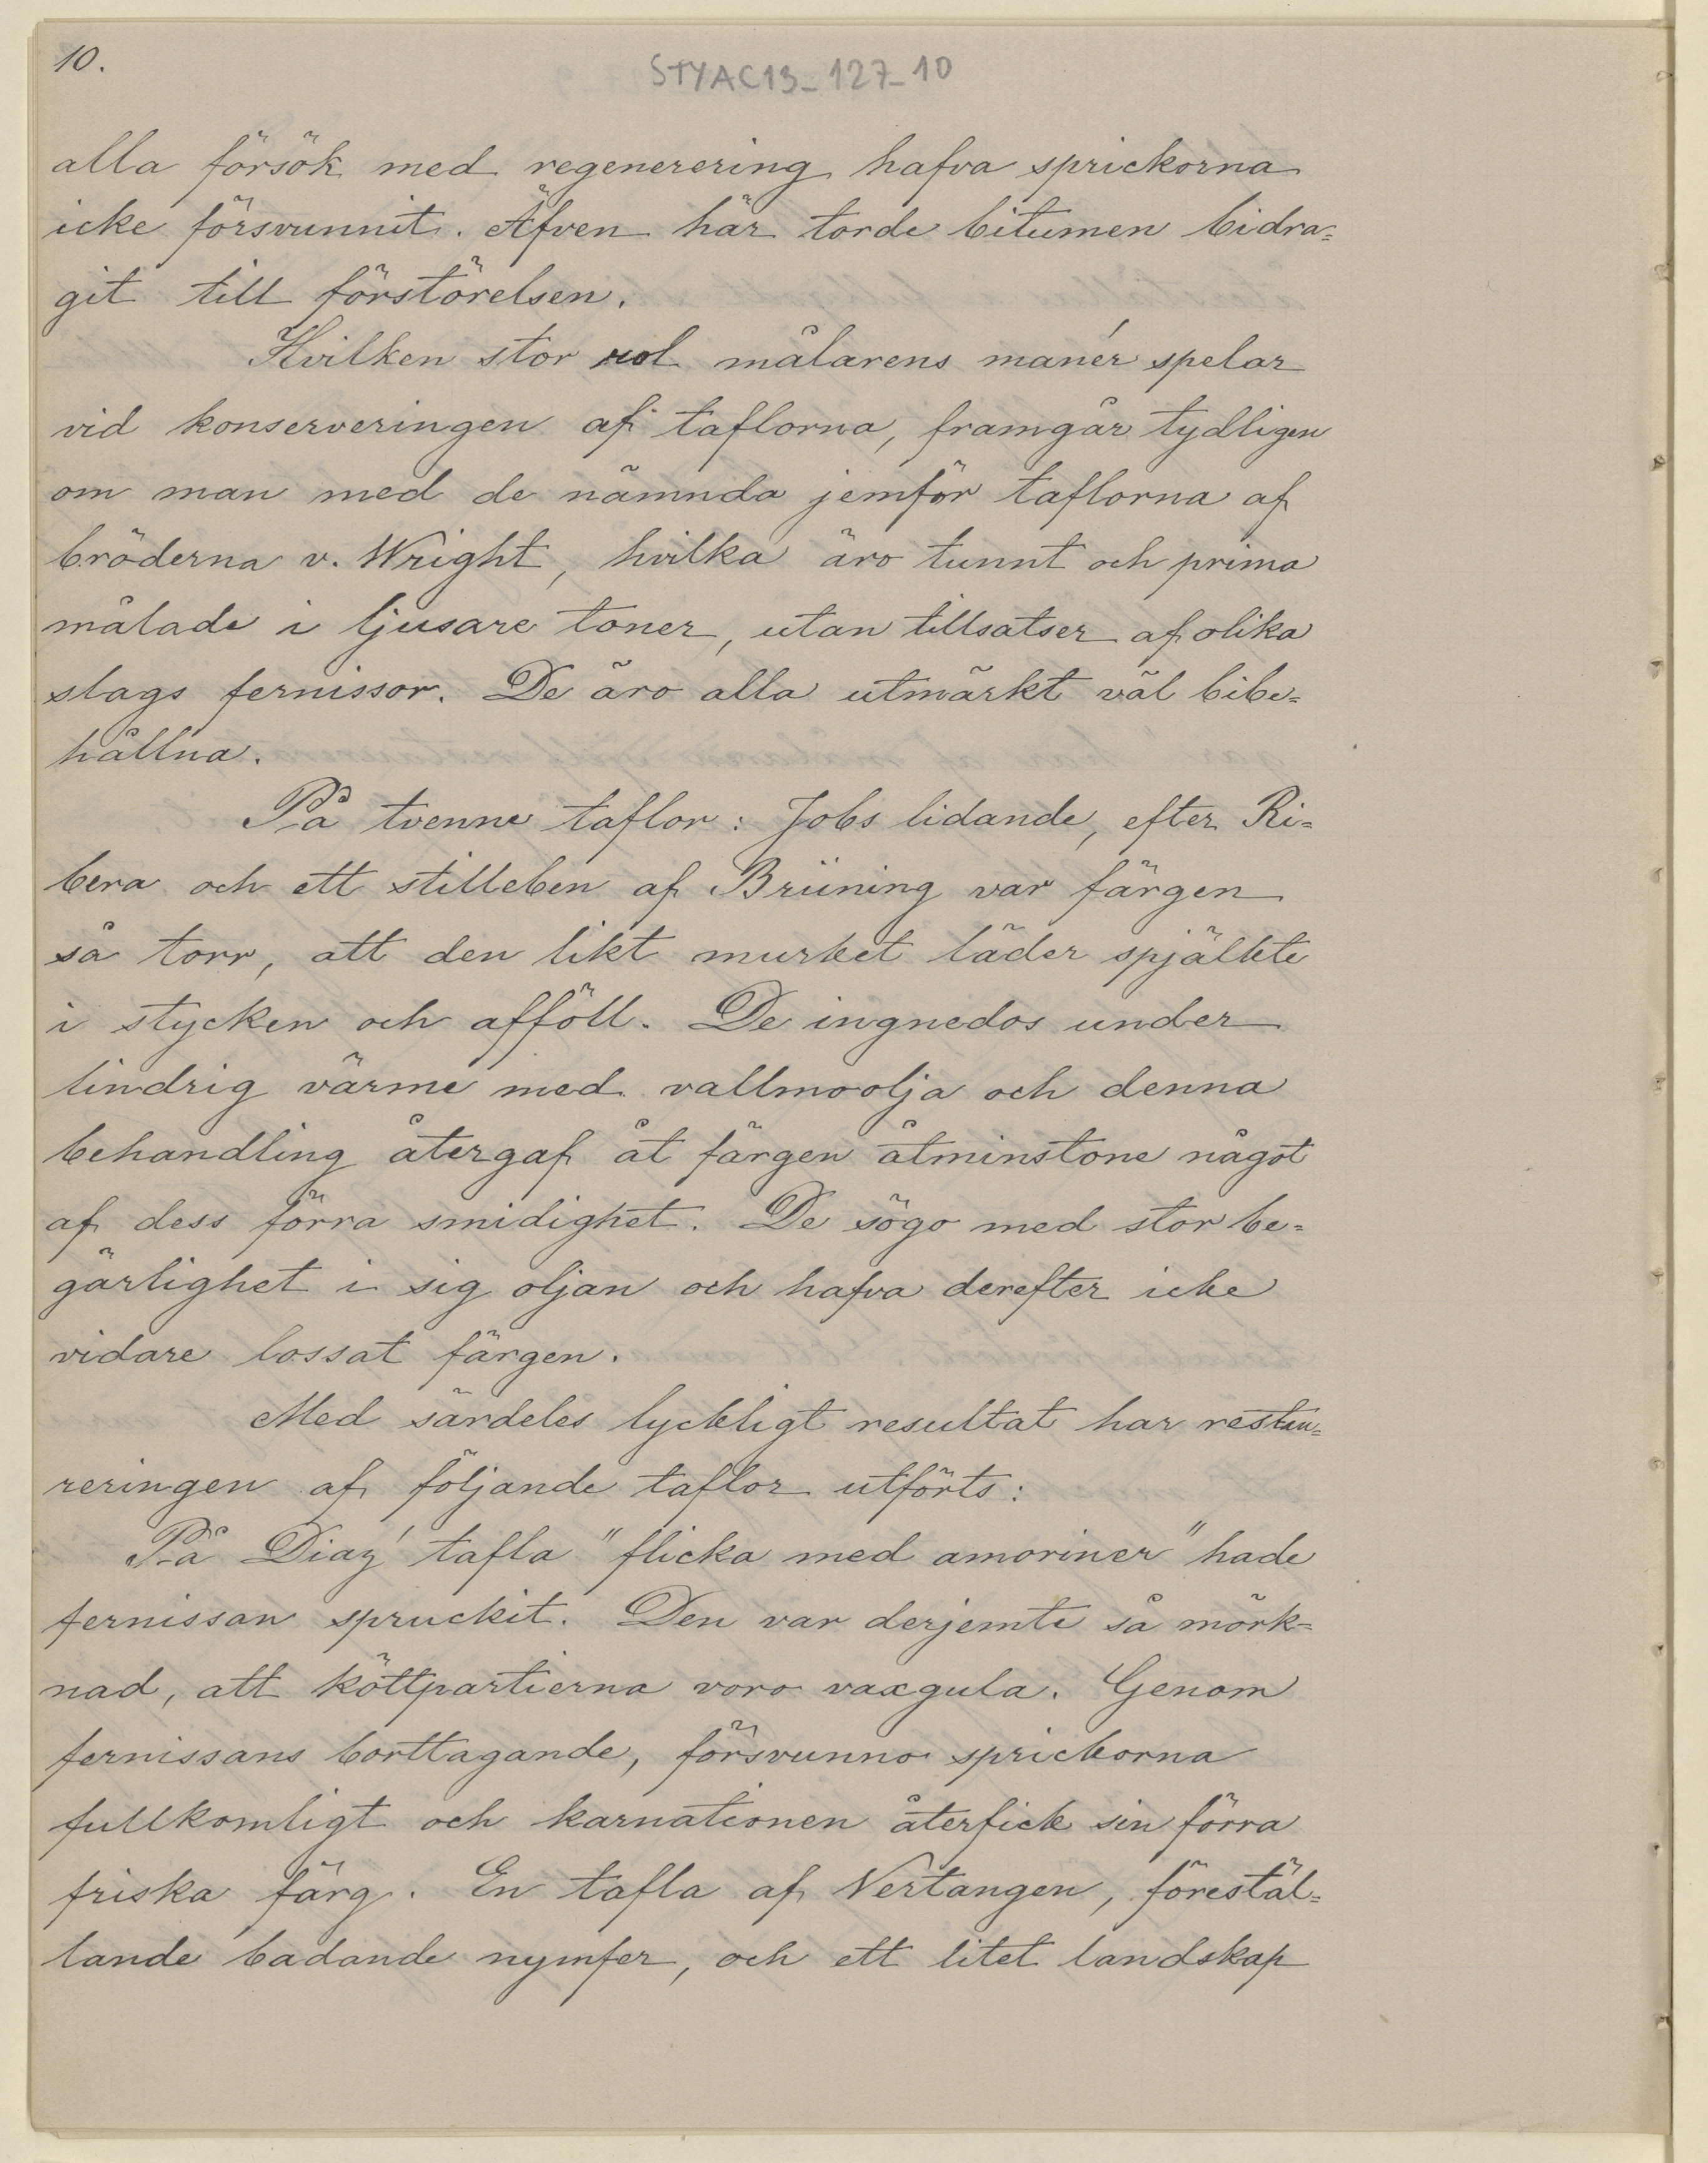 10.
STYAC13_127_10
alla försök med regenerering hafva sprickorna
icke försvunnit. Äfven här torde bitumen bidra=
git till förstörelsen.
Hvilken stor rol målarens manér spelar
vid konserveringen af taflorna, framgår tydligen
om man med de nämnda jemför taflorna af
bröderna v. Wright, hvilka äro tunnt och prima
målade i ljusare toner, utan tillsatser af olika
slags fernissor. De äro alla utmärkt väl bibe=
hållna.
På tvenne taflor: Jobs lidande, efter Ri=
bera och ett stilleben af Brüning var färgen
så torr, att den likt murket läder spjälkte
i stycken och afföll. De ingnedos under
lindrig värme med vallmoolja och denna
behandling återgaf åt färgen åtminstone något
af dess förra smidighet. De sögo med stor be=
gärlighet i sig oljan och hafva derefter icke
vidare lossat färgen.
Med särdeles lyckligt resultat har restau=
reringen af följande taflor utförts:
På Diaz' tafla "flicka med amoriner" hade
fernissan spruckit. Den var derjemte så mörk=
nad, att köttpartierna voro vaxgula. Genom
fernissans borttagande, försvunno sprickorna
fullkomligt och karnationen återfick sin förra
friska färg. En tafla af Vertangen, förestäl=
lande badande nymfer, och ett litet landskap